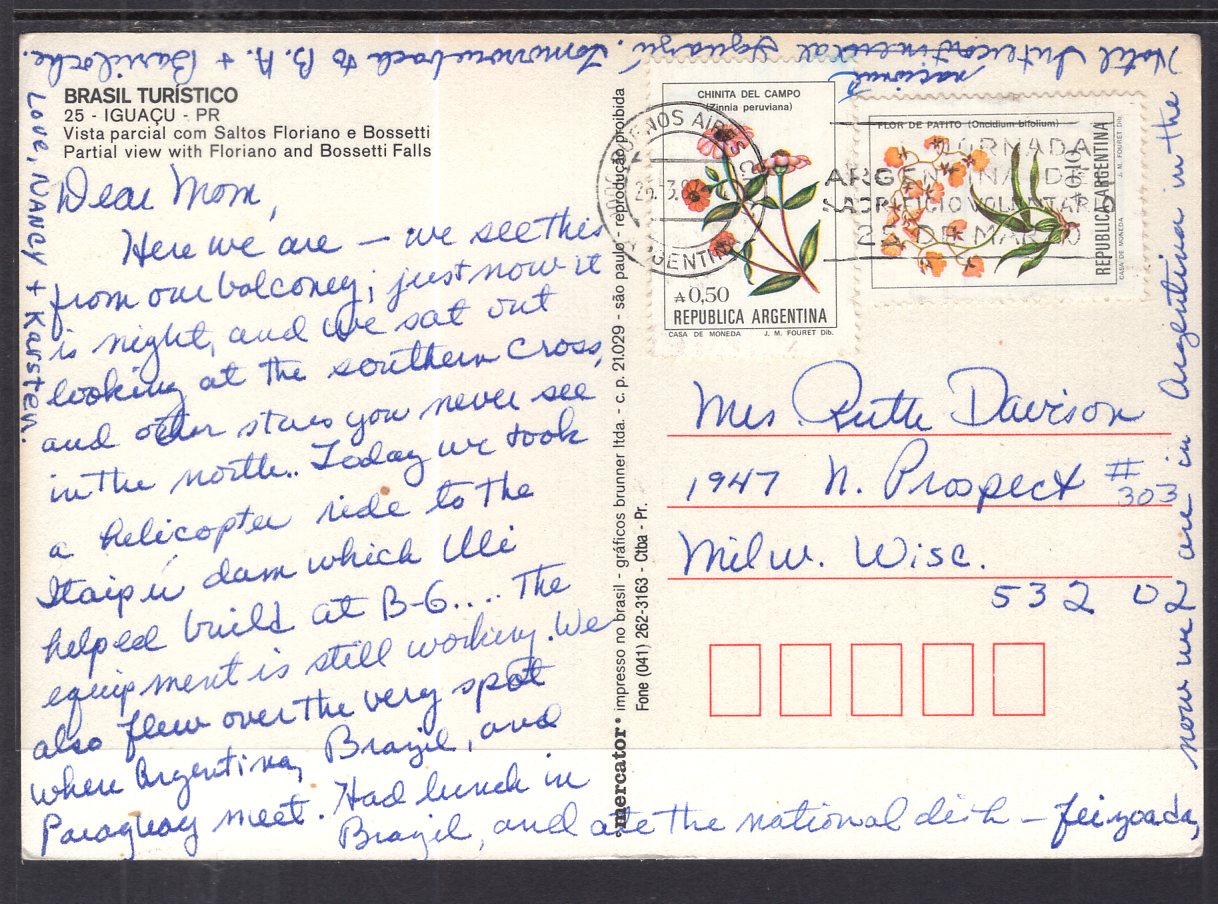 BRASIL TURÍSTICO
25 - IGUAÇU - PR
Vista parcial com Saltos Floriano e Bossetti
Partial view with Floriano and Bossetti Falls
Dear Mom,
Here we are — we see this
from our balconey; just now it
is night, and we sat out
looking at the southern cross,
and other stars you never see
in the north.. Today we took
a helicopter ride to the
Itaipú dam which Uli
helped build at B-6.... The
equipment is still working. We
also flew over the very spot
where Argentina, Brazil, and
Paraguay meet. Had lunch in
Brazil, and ate the national dish — feizoada,
now we are in Argentina in the
Hotel Intercontinental Iguazú.
nacional
Tomorrow back to B.A + Bariloche.
Love, Nancy + Karsten.
°mercator° impresso no brasil - gráficos brunner ltda. - c. p. 21.029 - são paulo - reprodução proibida
Fone (041) 262-3163 - Ctba - Pr.
CHINITA DEL CAMPO
(Zinnia peruviana)
₳ 0,50
REPUBLICA ARGENTINA
CASA DE MONEDA J. M. FOURET Dib.
FLOR DE PATITO (Oncidium bifolium)
₳ 0,10
REPUBLICA ARGENTINA
CASA DE MONEDA J. M. FOURET Dib.
BUENOS AIRES
ARGENTINA
JORNADA
ARGENTINA DEL
SACRIFICIO VOLUNTARIO
25 DE MARZO
Mrs. Ruth Davison
1947 N. Prospect #303
Milw. Wisc.
53202